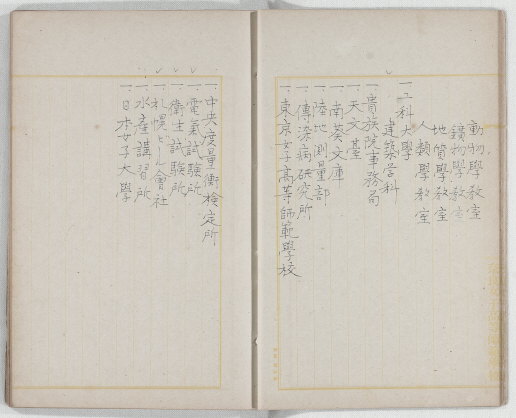 動物學教室
鑛物學教室
地質學教室
人類學教室
一 工科大學
建築学科
一 貴族院事務局
一 天文臺
一 南葵文庫
一 陸地測量部
一 傳染病研究所
一 東京女子高等師範學校
一 中央度量衡檢定所
一 電氣試驗所
一 衛生試験所
一 札幌ビール會社
一 水産講習所
一 日本女子大學